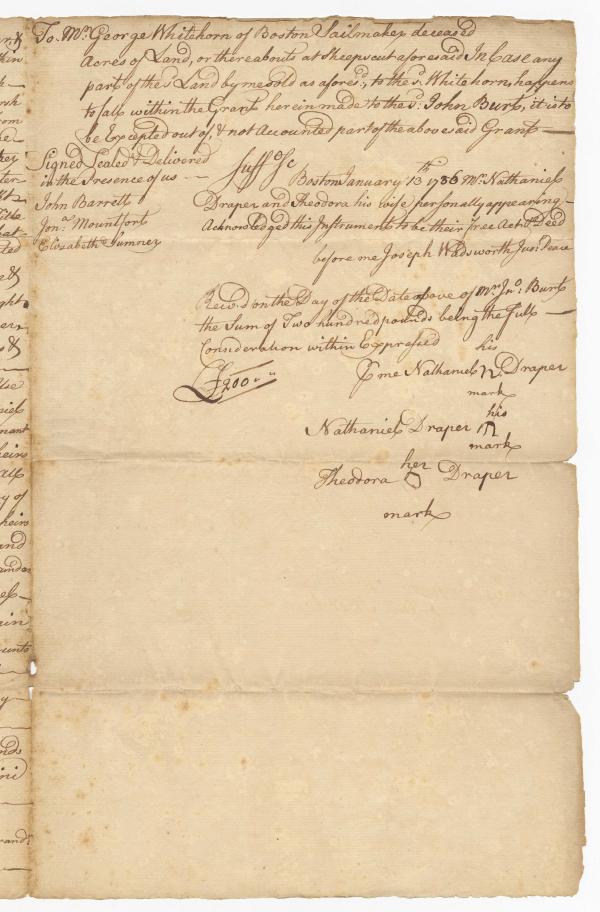 To Mr. George Whitehorn of Boston Sailmaker deceased
Acres of Land, or thereabouts at Sheepscut aforesaid In Case any
part of the sd. Land by me sold as aforesd., to the sd. Whitehorn, happens
to fall within the Grant herein made to the sd. John Burt, it is to
be Excepted out of & not Accounted part of the abovesaid Grant —
Signed Sealed & Delivered
in the Presence of us —
John Barrett
Jona. Mountfort
Elizabeth Sumner
Suffo Sc
Boston January 13th 1736 Mr. Nathaniel
Draper and Theodora his wife personally appearing
Acknowledged this Instrument to be their free Act & Deed
before me Joseph Wadsworth Jus: Peace
Recd. on the Day of the Date above of Mr. Jno: Burt
the Sum of Two hundred pounds being the full —
Consideration within Expressed
£200
his
me Nathaniel n Draper
mark
his
Nathaniel Draper n
mark
her
Theodora Draper
mark